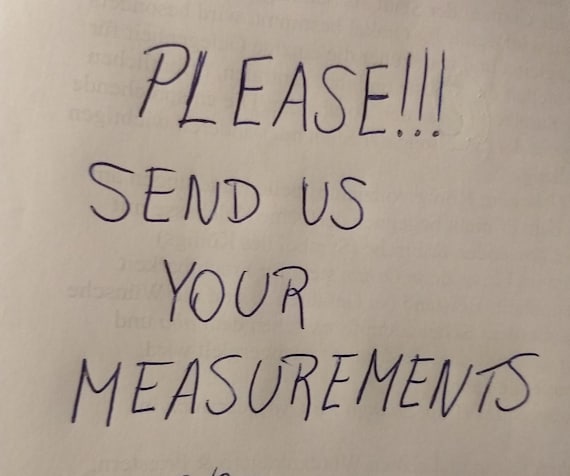 PLEASE!!!
SEND US
YOUR
MEASUREMENTS